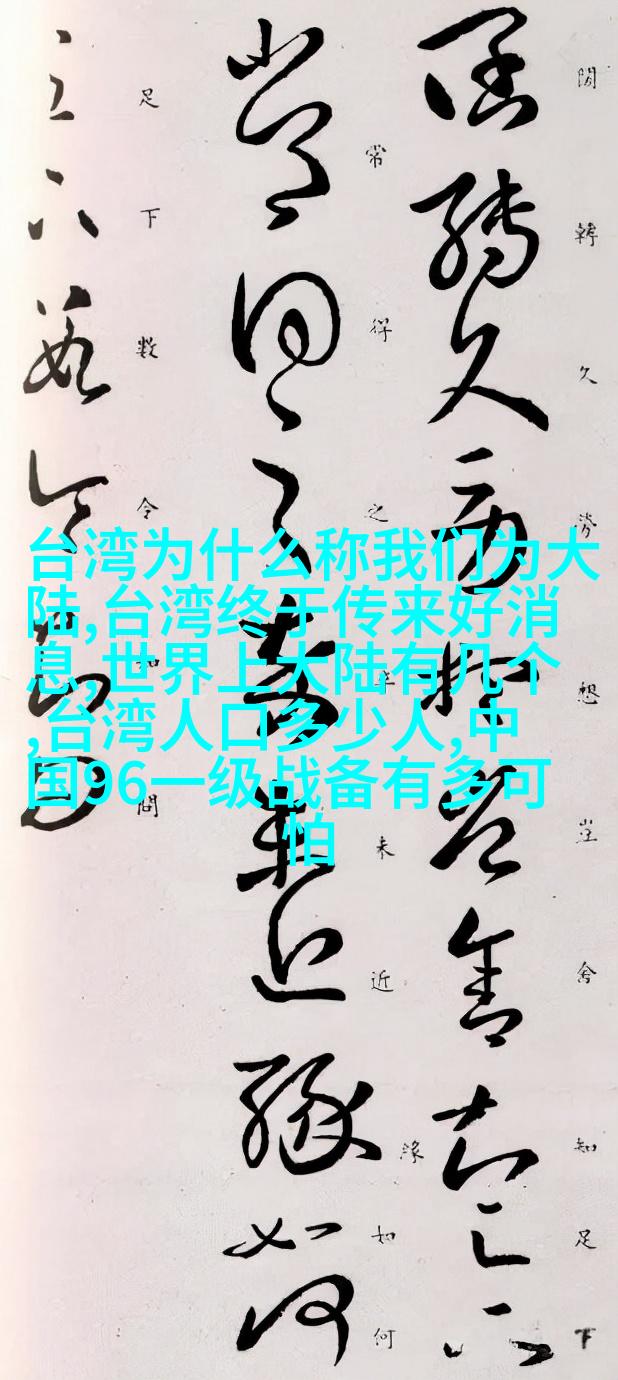 台湾为什么称我们为大
陆,台湾终于传来好消
息,世界上大陆有几个
,台湾人口多少人,中
国96一级战备有多可
怕
轉久勞想舍知足下
常得之未近緣如何
足下数令知問